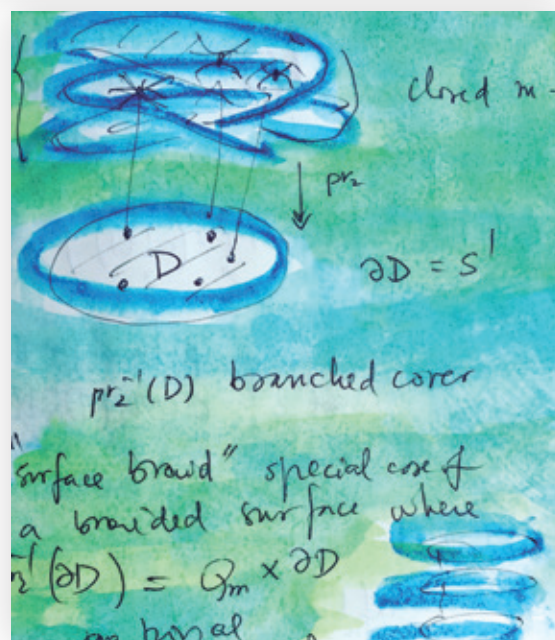 closed m-
pr₂
D
∂D = S¹
pr₂⁻¹(D) branched cover
"surface braid" special case of
a braided surface where
⁻¹(∂D) = Qₘ × ∂D